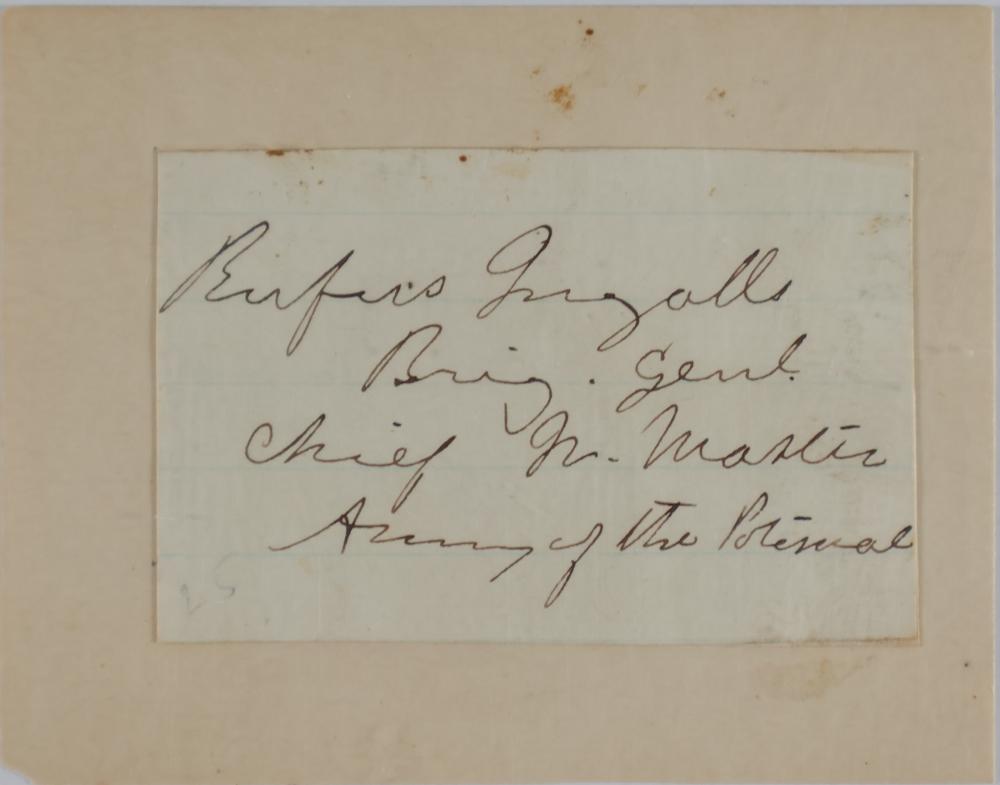 Rufus Ingalls
Brig. Genl.
Chief Qr. Master
Army of the Potomac
25